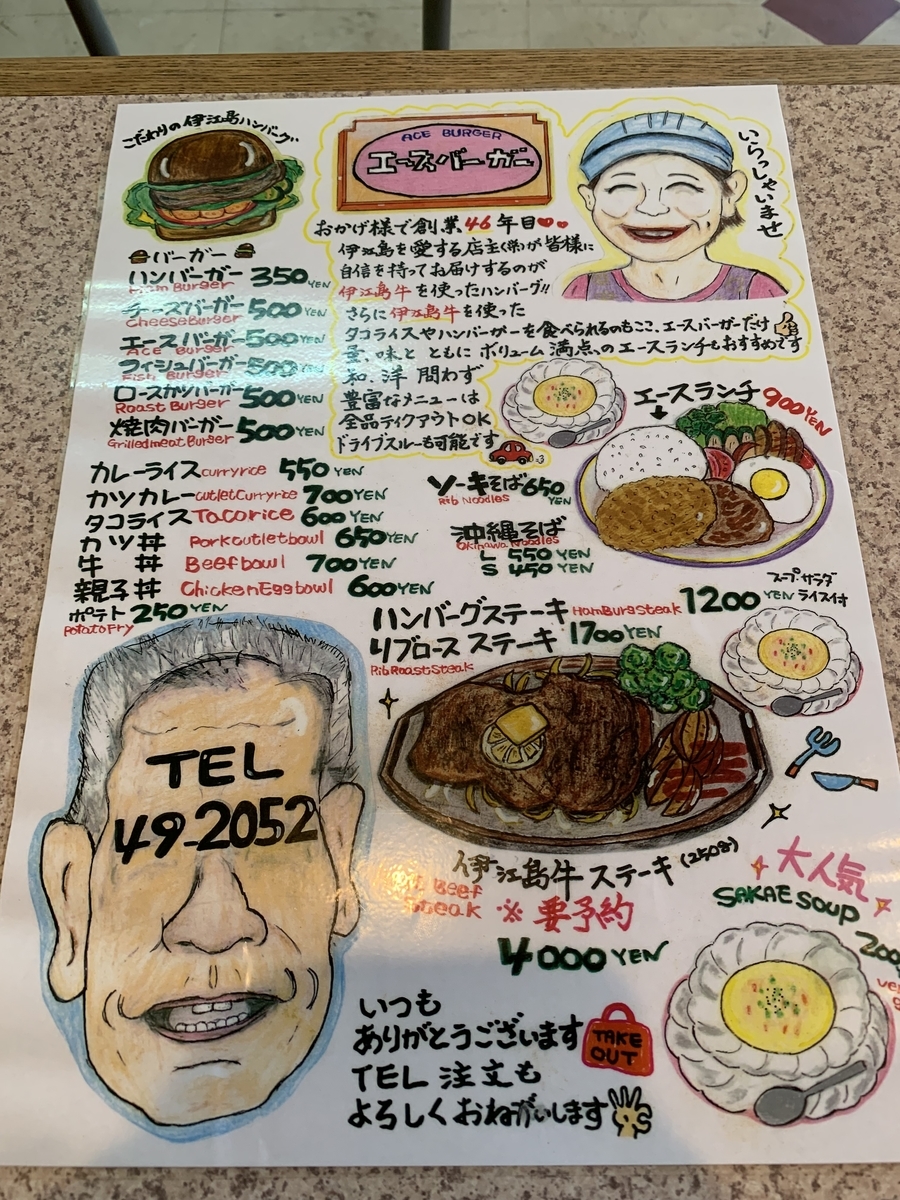 こだわりの伊江島ハンバーグ
ACE BURGER
エースバーガー
いらっしゃいませ
おかげ様で創業46年目
伊江島を愛する店主(栄)が皆様に
自信を持ってお届けするのが
伊江島牛を使ったハンバーグ!!
さらに伊江島牛を使った
タコライスやハンバーガーを食べられるのもここ、エースバーガーだけ
量、味とともにボリューム満点っのエースランチもおすすめです
和、洋問わず
豊富なメニューは
全品テイクアウトOK
ドライブスルーも可能です
バーガー
ハンバーガー 350 YEN
Ham Burger
チーズバーガー 500 YEN
Cheese Burger
エースバーガー 500 YEN
ACE Burger
フィシュバーガー 500 YEN
Fish Burger
ロースカツバーガー 500 YEN
Roast Burger
焼肉バーガー 500 YEN
Grilled meat Burger
カレーライス curry rice 550 YEN
カツカレー cutlet Curry rice 700 YEN
タコライス Taco rice 600 YEN
カツ丼 Pork cutlet bowl 650 YEN
牛丼 Beef bowl 700 YEN
親子丼 Chicken Egg bowl 600 YEN
ポテト 250 YEN
Potato Fry
エースランチ 900 YEN
ソーキそば 650 YEN
Rib Noodles
沖縄そば
Okinawa Noodles
L 550 EN
S 450 EN
ハンバーグステーキ HamBurg steak 1200 YEN
スープサラダ
ライス付
リブロースステーキ 1700 YEN
Rib Roast Steak
TEL
49-2052
伊江島牛ステーキ(250g)
Beef
Steak ※要予約
4000 YEN
大人気
SAKAE SOUP
200
いつも
ありがとうございます
TAKE
OUT
TEL注文も
よろしくおねがいします